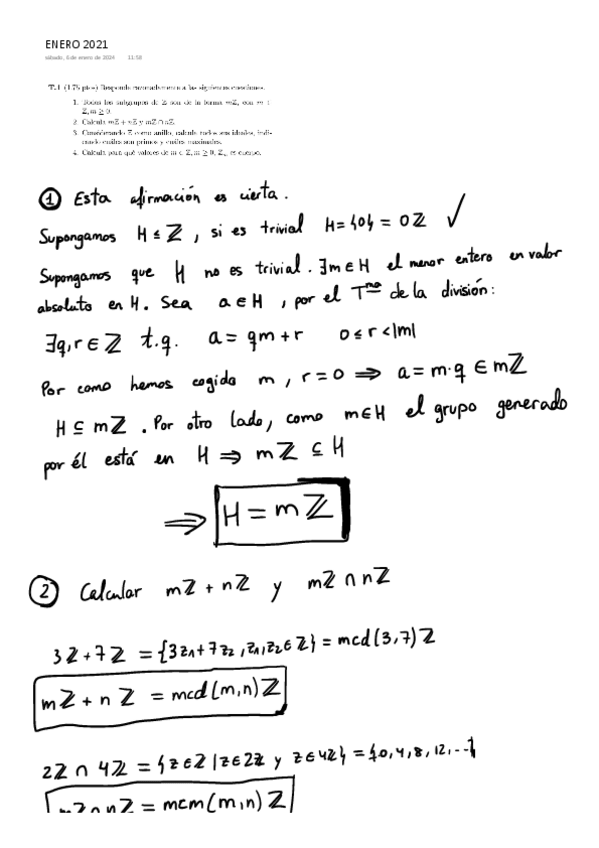 ENERO 2021
sábado, 6 de enero de 2024 11:58
T.1 (1.75 ptos) Responde razonadamente a las siguientes cuestiones.
1. Todos los subgrupos de ℤ son de la forma mℤ, con m ∈
ℤ, m ≥ 0.
2. Calcula mℤ + nℤ y mℤ ∩ nℤ.
3. Considerando ℤ como anillo, calcula todos sus ideales, indi-
cando cuáles son primos y cuáles maximales.
4. Calcula para qué valores de m ∈ ℤ, m ≥ 0, ℤₘ es cuerpo.
① Esta afirmación es cierta.
Supongamos H ≤ ℤ, si es trivial H = {0} = 0ℤ ✓
Supongamos que H no es trivial. ∃m ∈ H el menor entero en valor
absoluto en H. Sea a ∈ H, por el Tᵐᵃ de la división:
∃q, r ∈ ℤ t.q. a = qm + r 0 ≤ r < |m|
Por como hemos cogido m, r = 0 ⇒ a = m·q ∈ mℤ
H ⊆ mℤ. Por otro lado, como m ∈ H el grupo generado
por él está en H ⇒ mℤ ⊆ H
⇒ H = mℤ
② Calcular mℤ + nℤ y mℤ ∩ nℤ
3ℤ + 7ℤ = {3z₁ + 7z₂, z₁, z₂ ∈ ℤ} = mcd(3,7)ℤ
mℤ + nℤ = mcd(m,n)ℤ
2ℤ ∩ 4ℤ = {z ∈ ℤ | z ∈ 2ℤ y z ∈ 4ℤ} = {0, 4, 8, 12, ...}
mℤ ∩ nℤ = mcm(m,n)ℤ